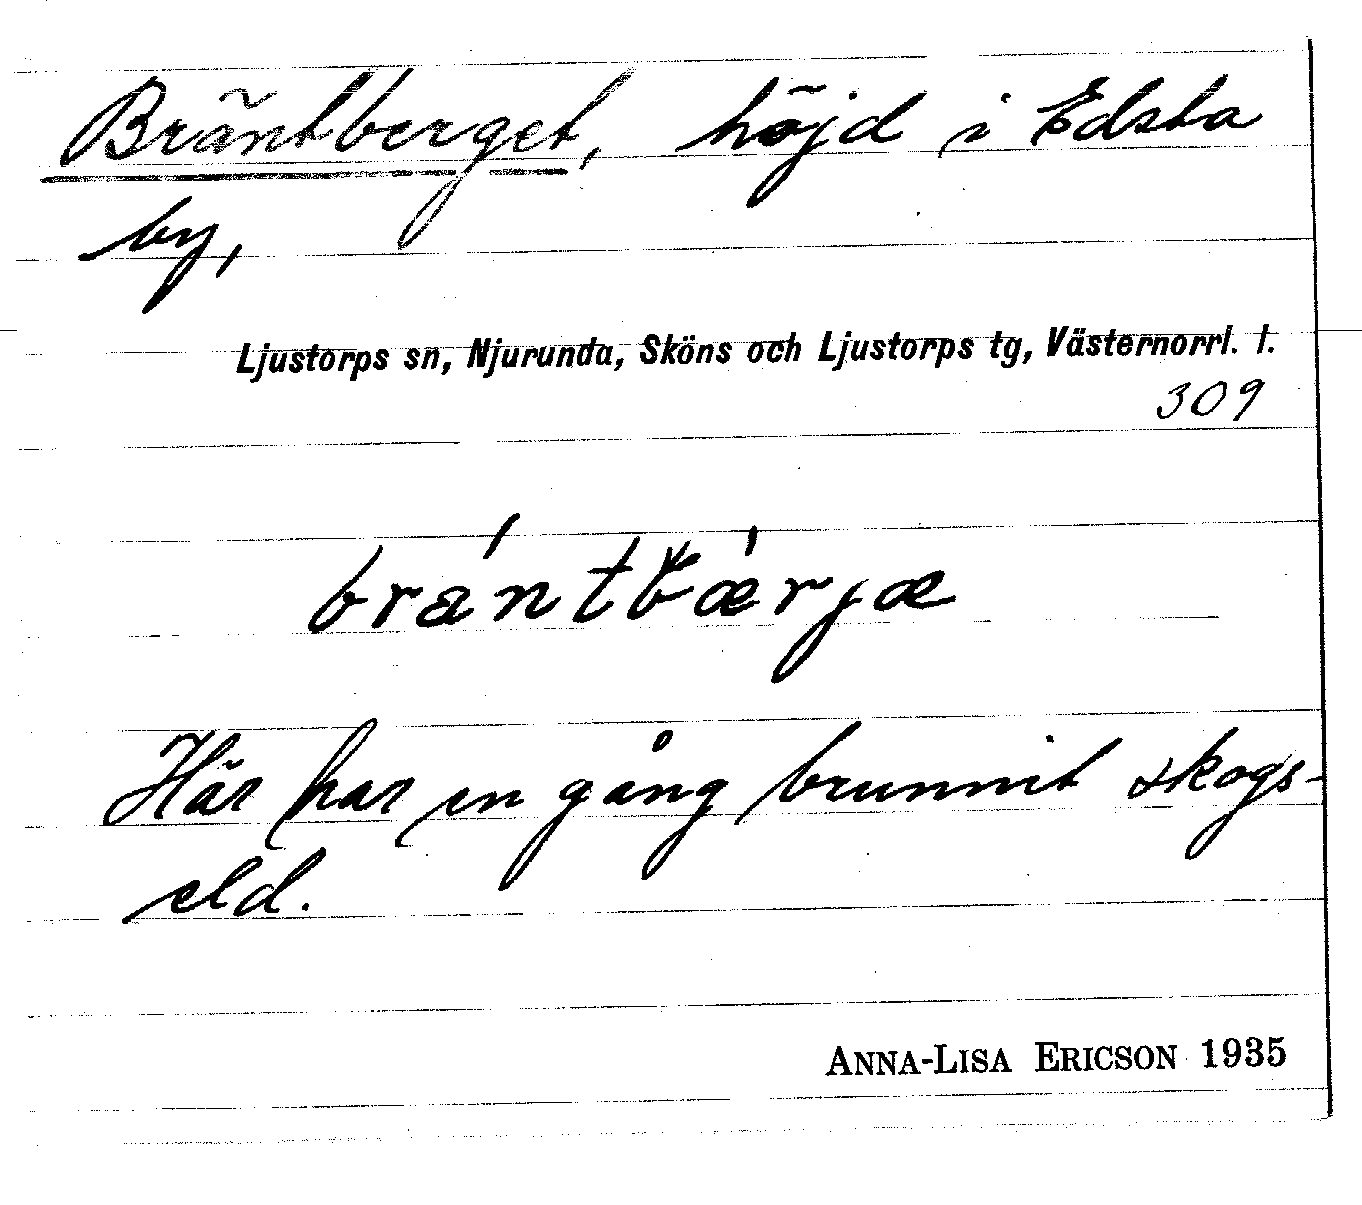 Bräntberget, höjd i Edsta
by,
Ljustorps sn, Njurunda, Sköns och Ljustorps tg, Västernorrl. l.
309
Här har en gång brunnit skogs-
eld.
ANNA-LISA ERICSON 1935